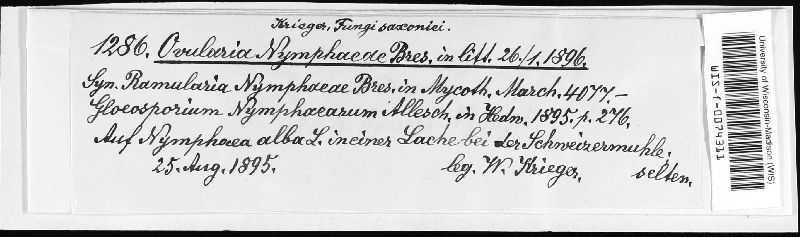 Krieger, Fungi saxonici.
1286. Ovularia Nymphaeae Bres. in litt. 26./1. 1896.
Syn. Ramularia Nymphaeae Bres. in Mycoth. March. 4077.-
Gloeosporium Nymphaearum Allesch. in Hedw. 1895. p. 276.
Auf Nymphaea alba L. in einer Lache bei der Schweizermühle.
25. Aug. 1895. leg. W. Krieger. selten.
University of Wisconsin-Madison (WIS)
WIS-f-0074311